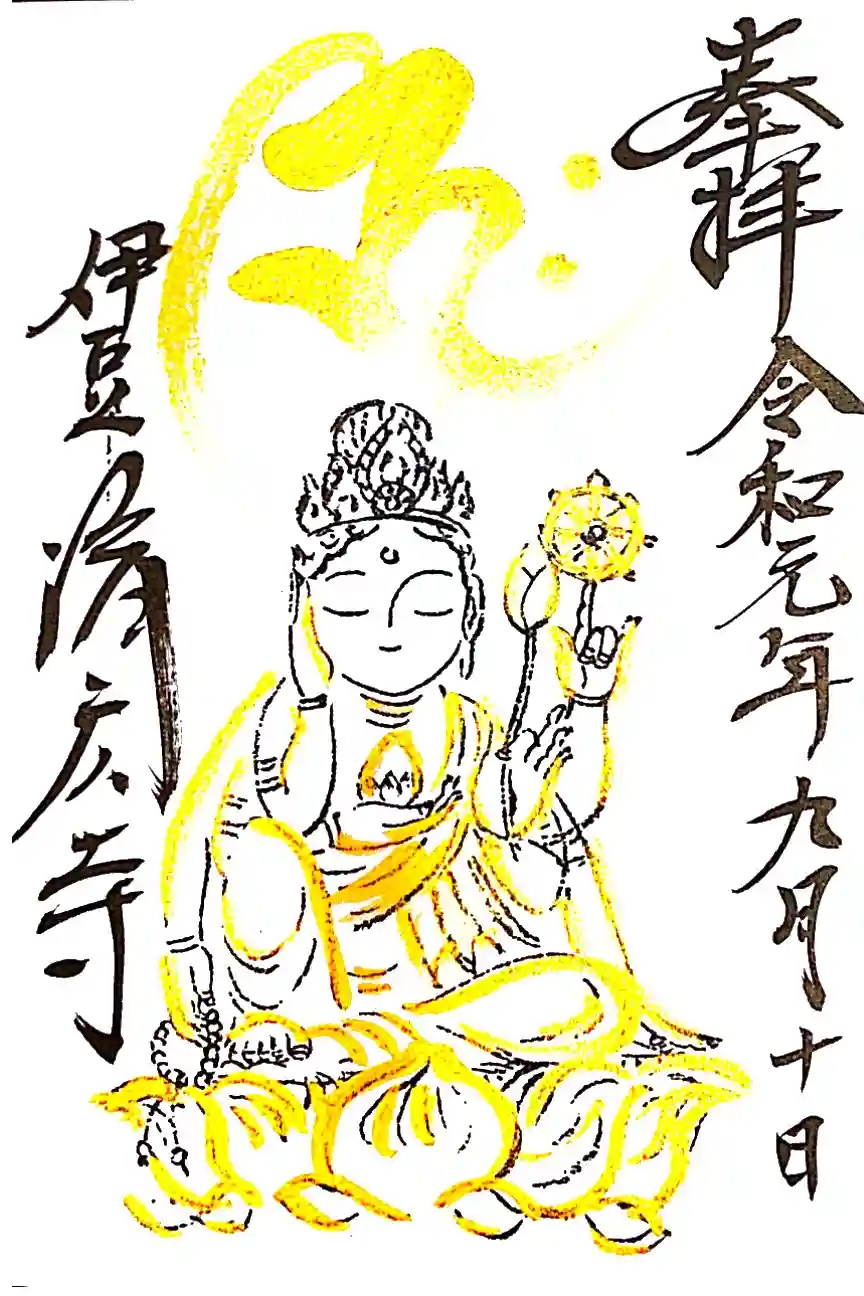 𑖮𑖿𑖨𑖱𑖾
奉拝 令和元年九月十日
伊豆 済広寺